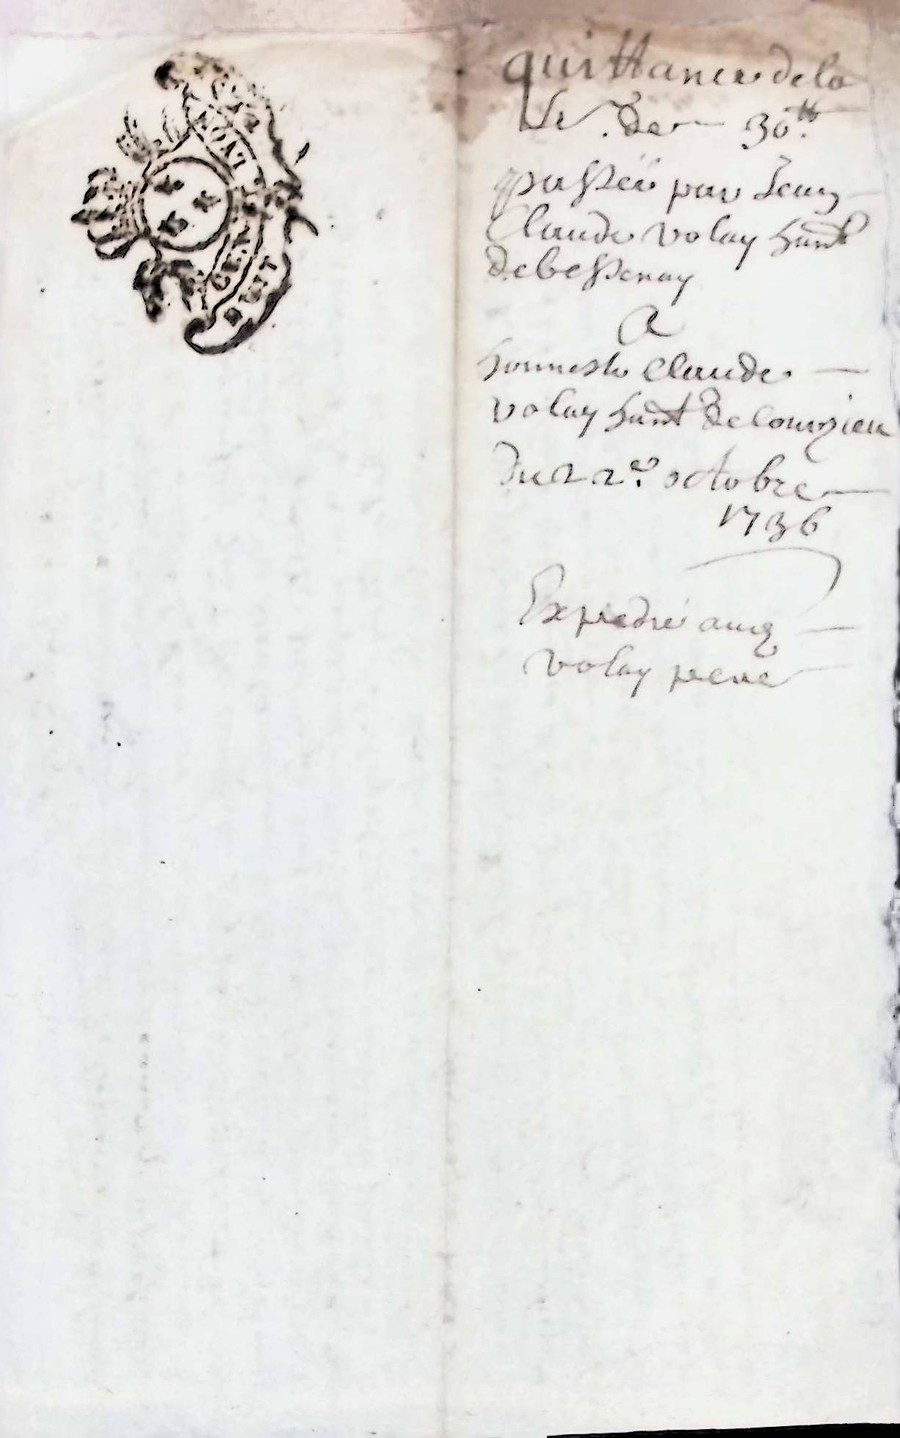 quittance de la
De 30tt
passéé par Jean
Claude volay hant
de bessenay
A
honneste Claude
volay hant de Courzieu
Du 22e octobre
1736
Expedié audq
volay
LYON
GEN